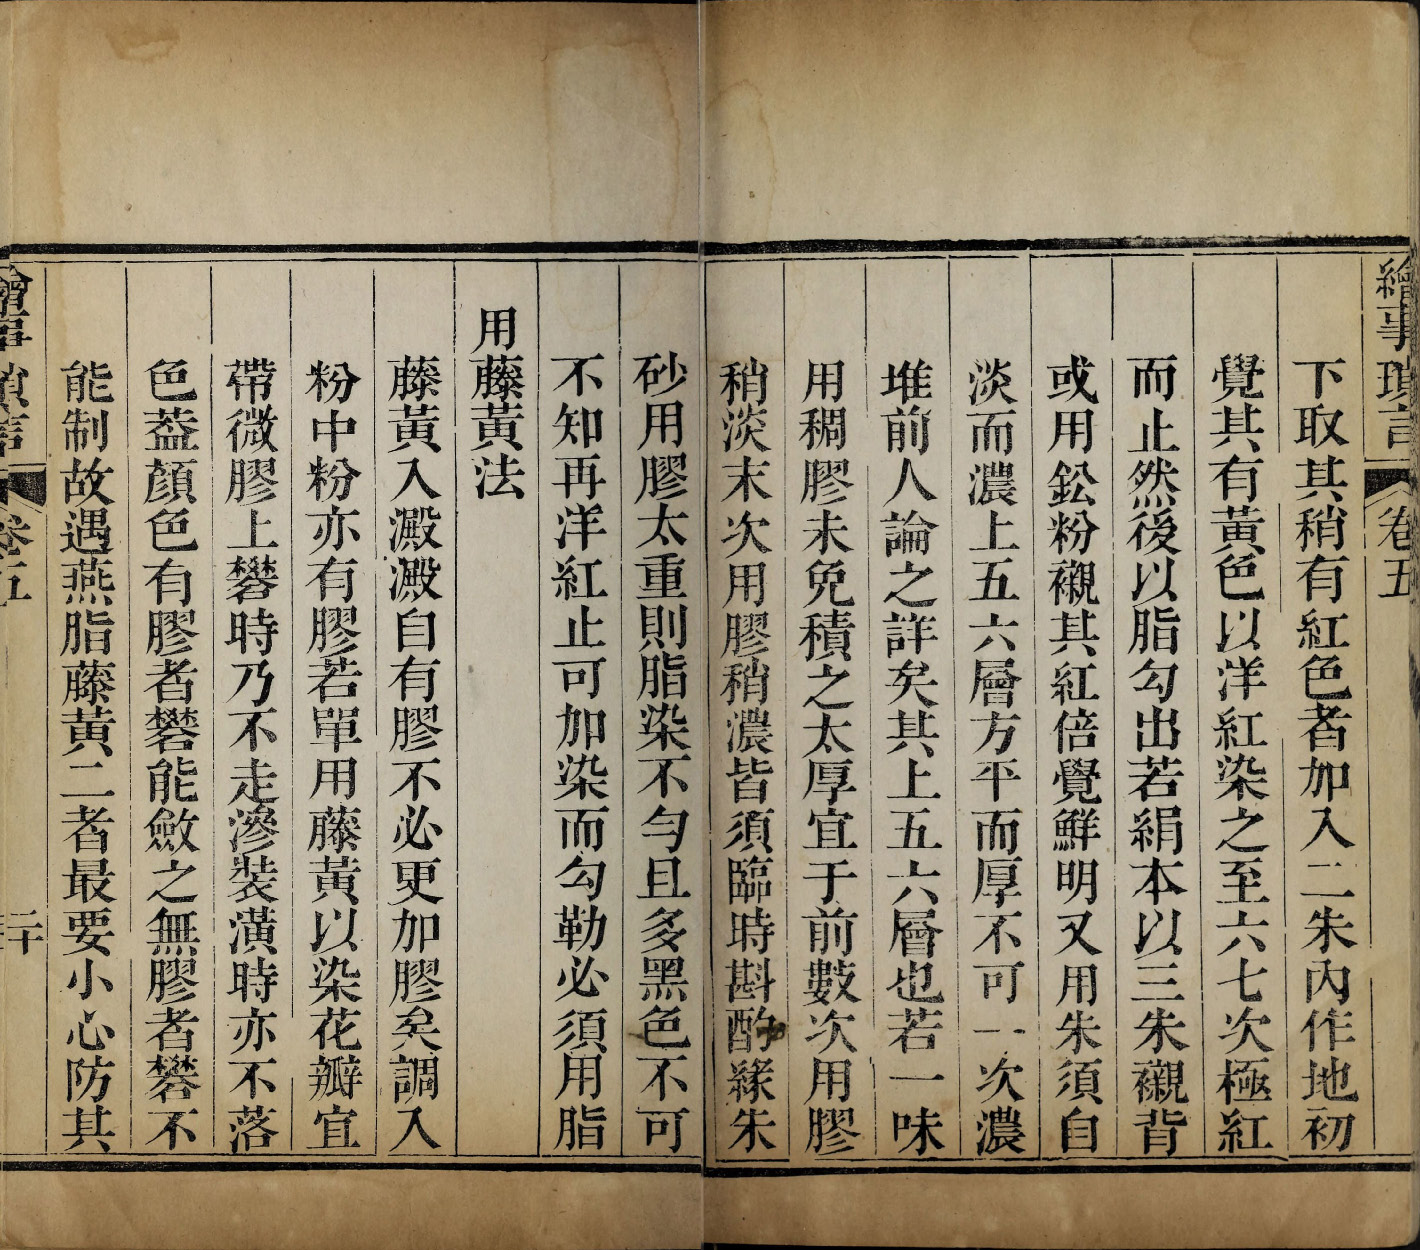 繪事瑣言 卷五
下取其稍有紅色者加入二朱內作地初
覺其有黃色以洋紅染之至六七次極紅
而止然後以脂勾出若絹本以三朱襯背
或用鉛粉襯其紅倍覺鮮明又用朱須自
淡而濃上五六層方平而厚不可一次濃
堆前人論之詳矣其上五六層也若一味
用稠膠未免積之太厚宜于前數次用膠
稍淡末次用膠稍濃皆須臨時斟酌緣朱
砂用膠太重則脂染不勻且多黑色不可
不知再洋紅止可加染而勾勒必須用脂
用藤黃法
藤黃入澱澱自有膠不必更加膠矣調入
粉中粉亦有膠若單用藤黃以染花瓣宜
帶微膠上礬時乃不走滲裝潢時亦不落
色葢顏色有膠者礬能斂之無膠者礬不
能制故遇燕脂藤黃二者最要小心防其
繪事瑣言 卷五 二十